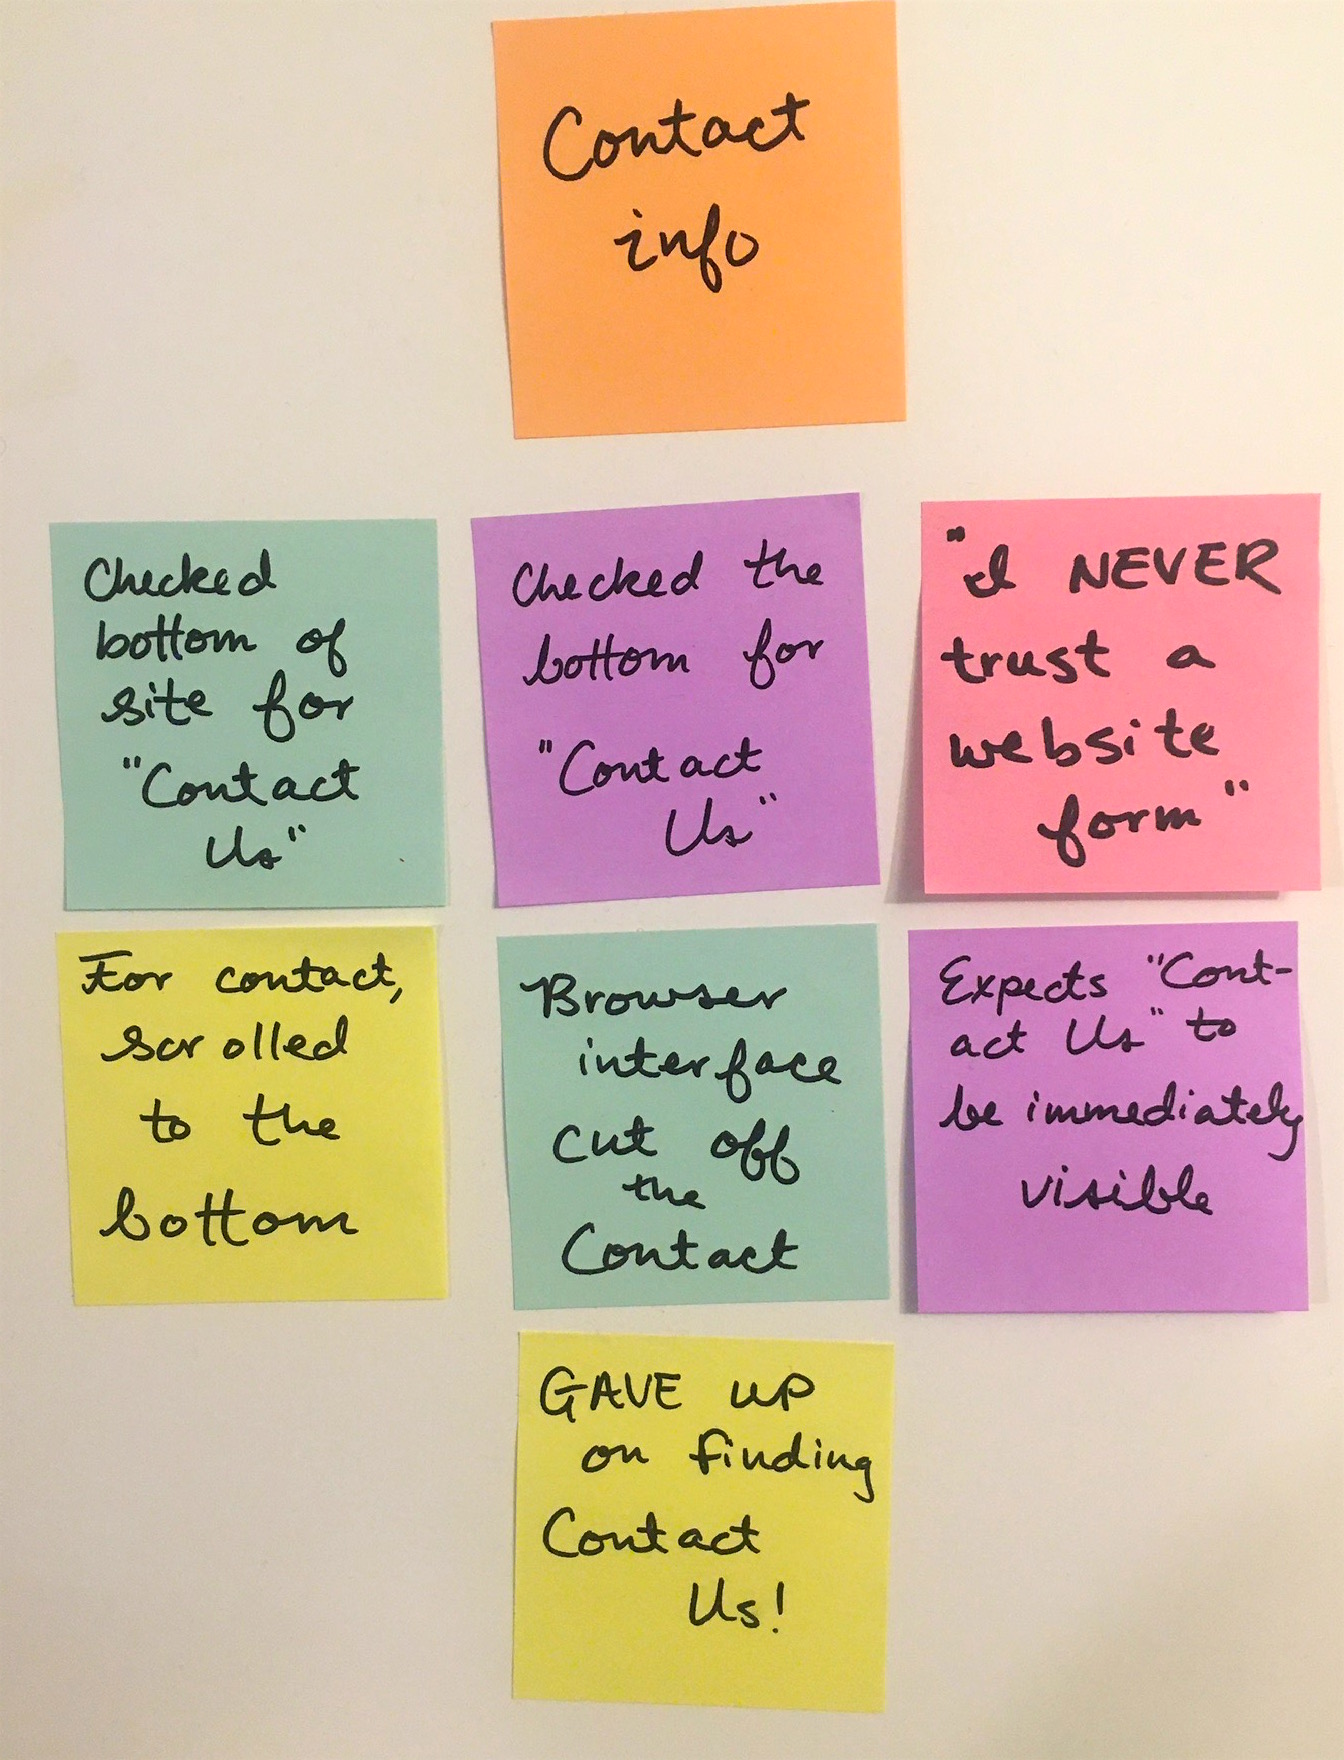 Contact
info
Checked
bottom of
site for
"Contact
Us"
Checked the
bottom for
"Contact
Us"
"I NEVER
trust a
website
form"
For contact,
scrolled
to the
bottom
Browser
interface
cut off
the
Contact
Expects "Cont-
act Us" to
be immediately
visible
GAVE UP
on finding
Contact
Us!